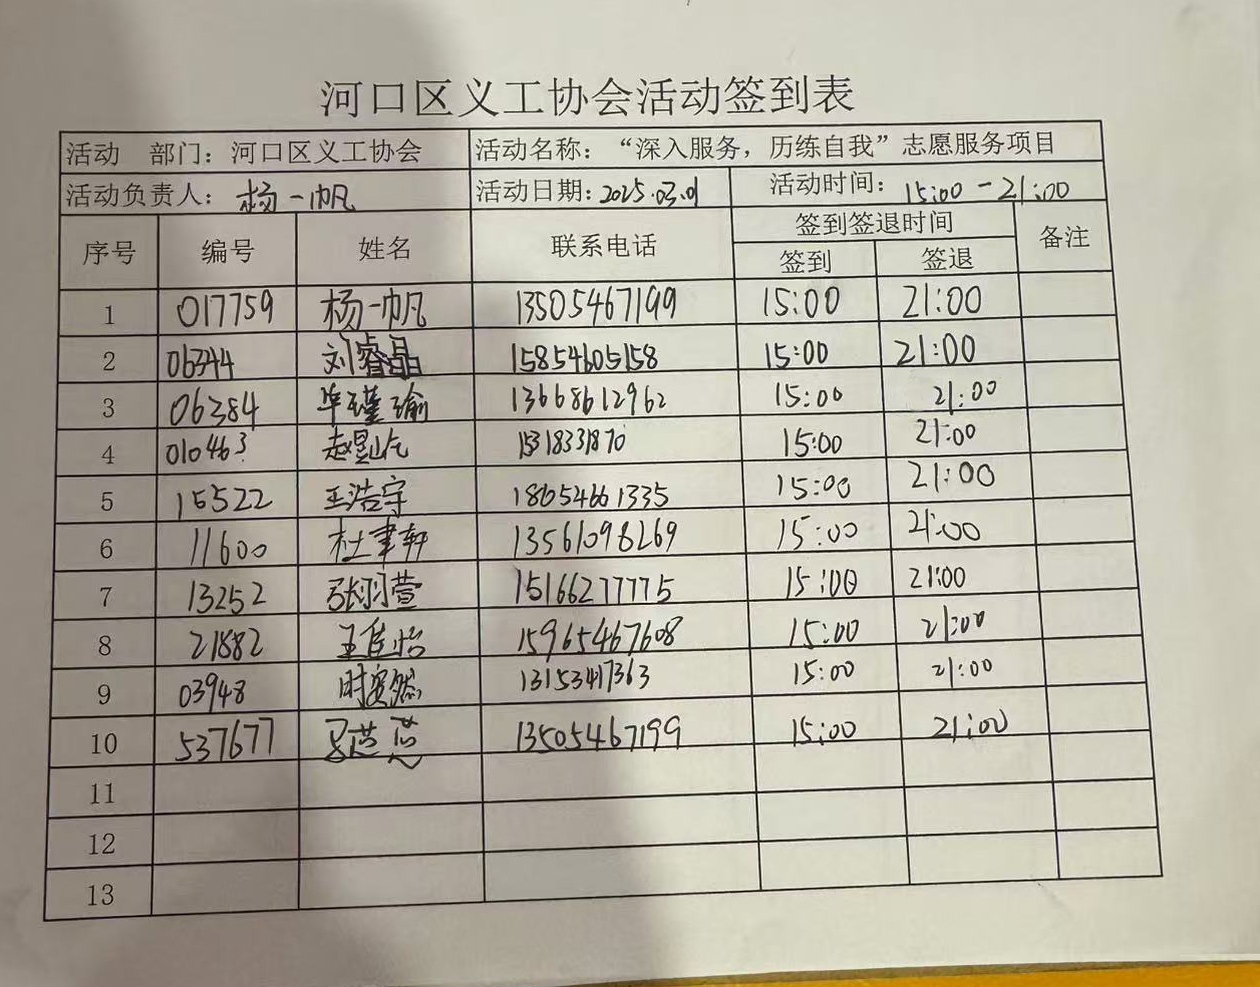 河口区义工协会活动签到表
活动 部门：河口区义工协会 活动名称：“深入服务，历练自我”志愿服务项目
活动负责人：杨一帆 活动日期：2025.03.01 活动时间：15:00-21:00
序号 编号 姓名 联系电话 签到签退时间 备注
签到 签退
1 017759 杨一帆 13505467199 15:00 21:00
2 06344 刘睿晶 15854605158 15:00 21:00
3 06384 毕瑾瑜 13668612962 15:00 21:00
4 010463 赵 15318331870 15:00 21:00
5 15522 王浩宇 18654661335 15:00 21:00
6 11600 杜聿轩 13561098269 15:00 21:00
7 13252 张羽萱 15166277775 15:00 21:00
8 21882 王佳怡 15965467608 15:00 21:00
9 03948 时安然 13153417363 15:00 21:00
10 537677 13505467199 15:00 21:00
11
12
13